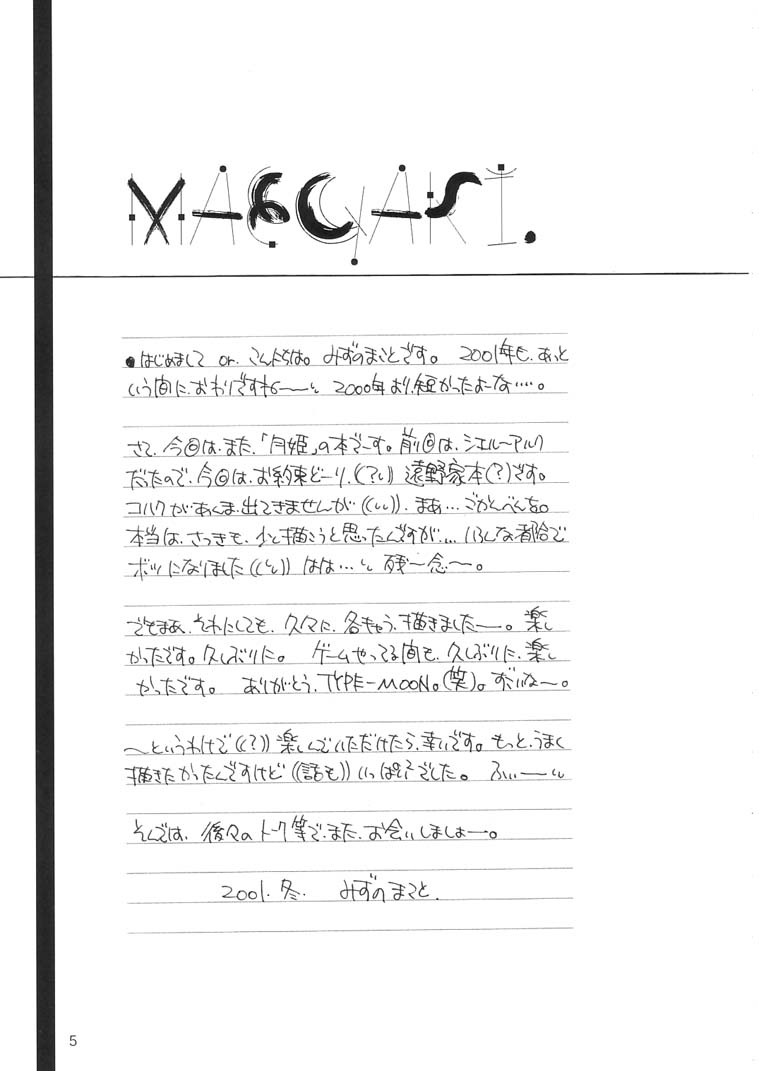 MAEGAKI.
●はじめまして or. こんにちは。 みずのまことです。 2001年も、あっと
いう間に、おわりですねィ〜〜い 2000年より、短かったよーな‥‥。
さて、今回は、また、「月姫」の本でーす。前回は、シエルーアルク
だたので、今回は、お約束どーり、(?い) 遠野家本(?)です。
コハクがあんま、出てきませんが((いい))、まぁ…ごかんべんを。
本当は、さっきも、少し描こうと思ったんですが… いろんな都合で
ボツになりました((いい)) はは…い 残〜念〜。
でもまぁ、それにしても、久々に、各きゃら、描きましたーー。楽し
かったです。久しぶりに。 ゲームやってる間も、久しぶりに、楽し
かったです。 ありがとう、TYPE-MOON。(笑)。すごいな〜。
〜というわけで((?)) 楽しんでいただけたら、幸いです。もっと、うまく
描きたかったんですけど((話も)) いっぱいでした。 ふぃーーい
そんでは、後々のトーク等で、また、お会いしましょー。
2001. 冬. みずのまこと.
5